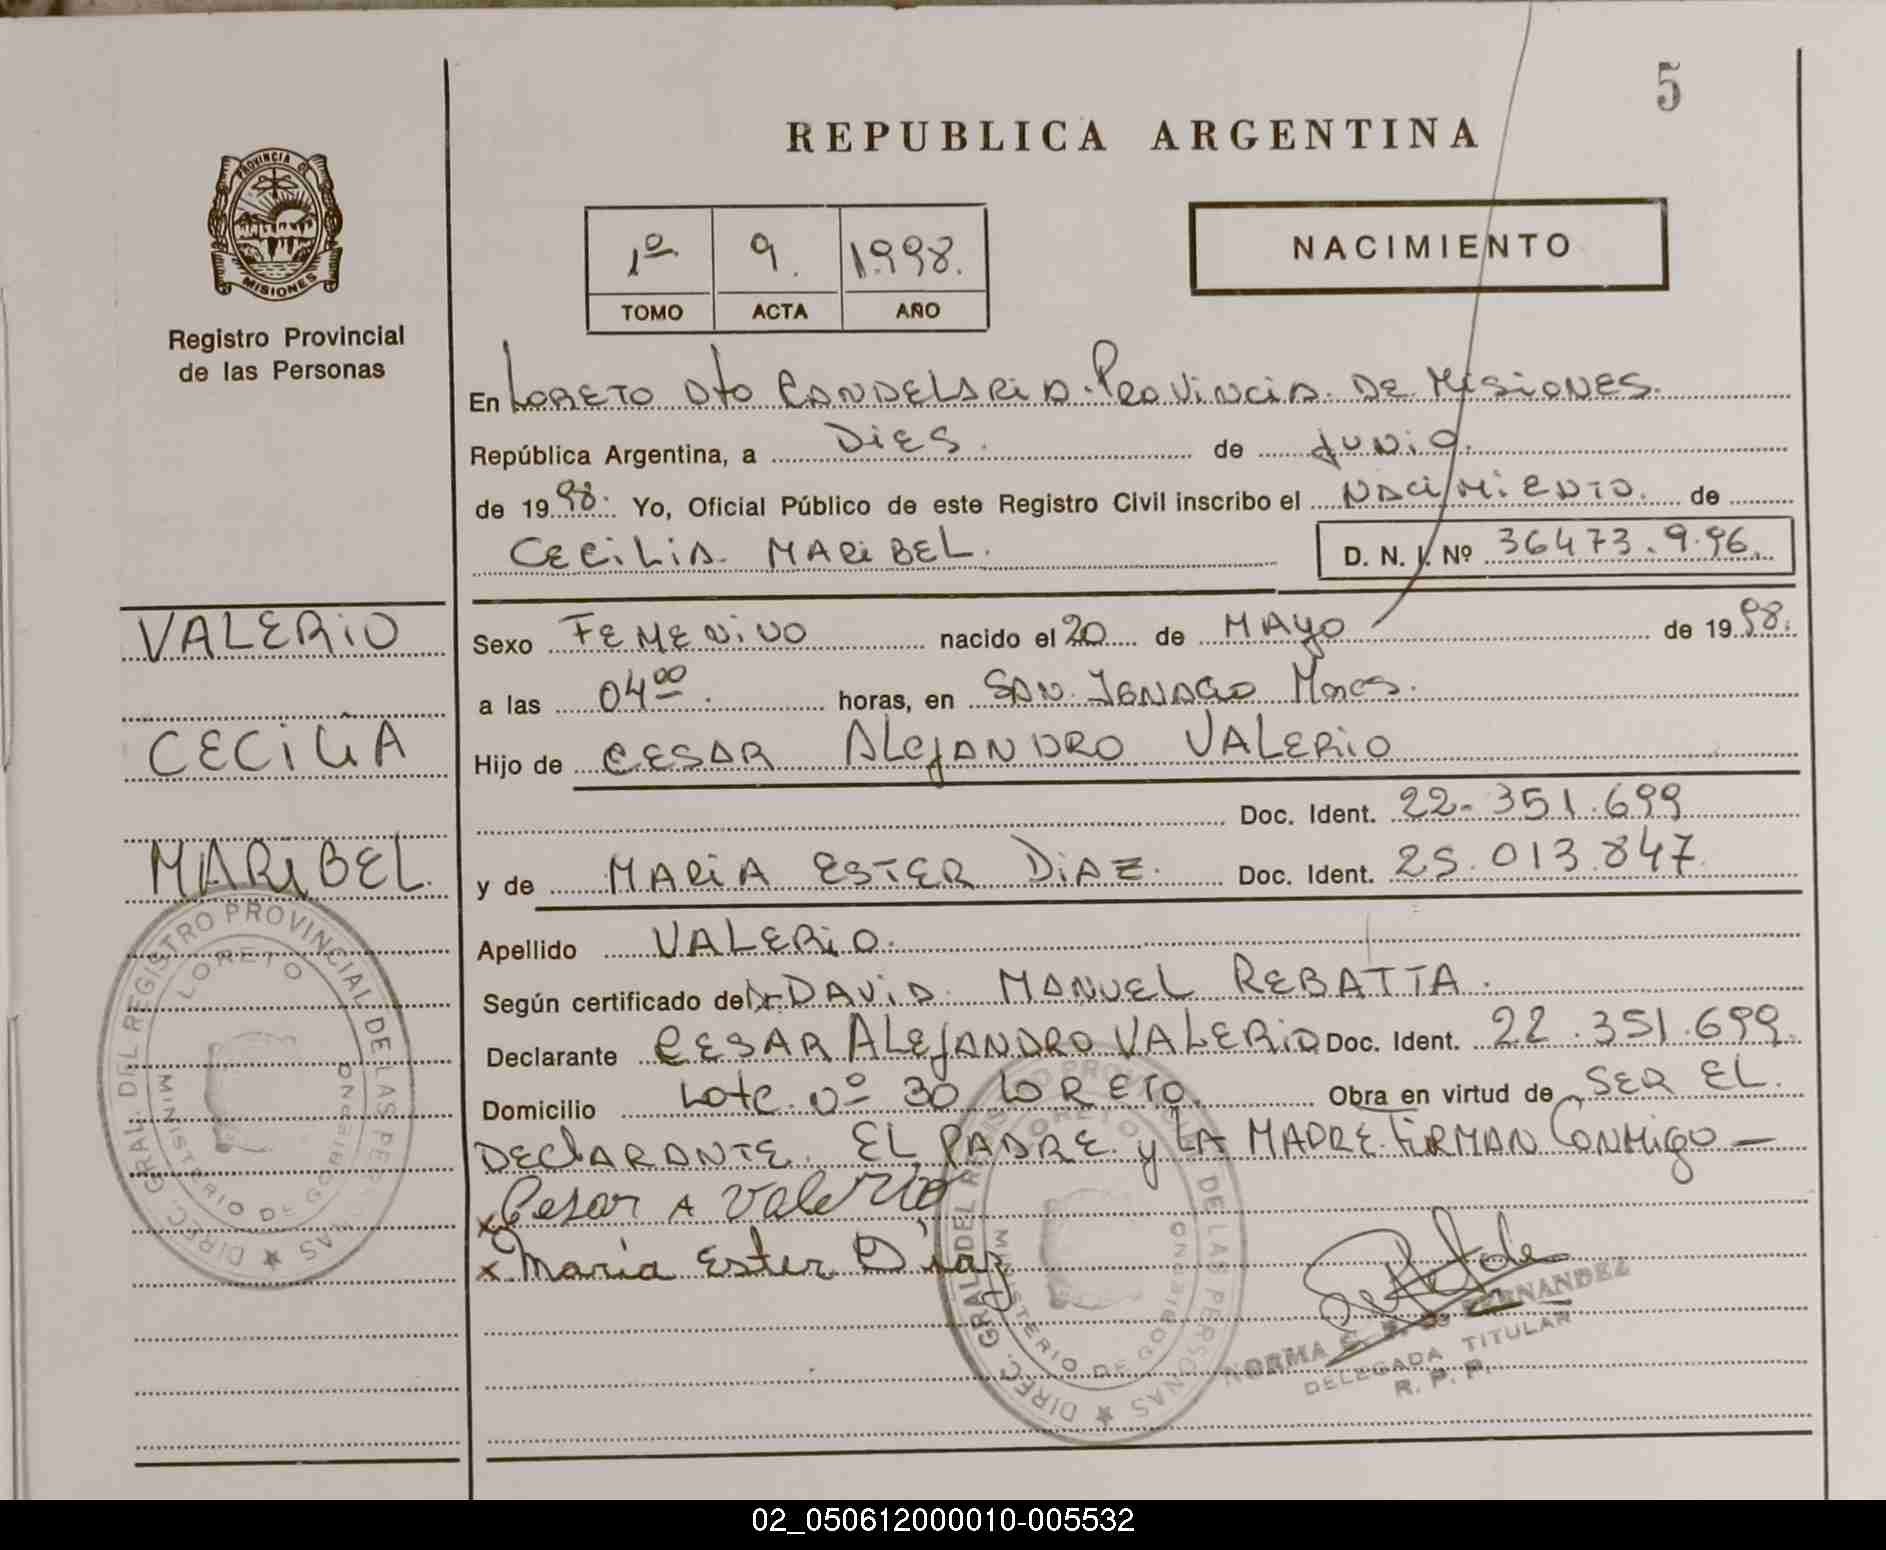 5
REPUBLICA ARGENTINA
PROVINCIA DE
MISIONES
Registro Provincial
de las Personas
1º 9. 1998.
TOMO ACTA AÑO
NACIMIENTO
En LORETO Dto CANDELARIA. PROVINCIA DE MISIONES.
República Argentina, a DIES. de JUNIO.
de 1998. Yo, Oficial Público de este Registro Civil inscribo el NACIMIENTO. de
CECILIA MARIBEL. D. N. I. Nº 36473.9.96.
VALERIO
CECILIA
MARIBEL.
Sexo FEMENINO nacido el 20 de MAYO de 1998.
a las 04⁰⁰. horas, en SAN IGNACIO Mnes.
Hijo de CESAR ALEJANDRO VALERIO
Doc. Ident. 22.351.699
y de MARIA ESTER DIAZ. Doc. Ident. 25.013.847
Apellido VALERIO.
Según certificado del Dr DAVID MANUEL REBATTA.
Declarante CESAR ALEJANDRO VALERIO Doc. Ident. 22.351.699.
Domicilio Lote nº 30 LORETO. Obra en virtud de SER EL
DECLARANTE. EL PADRE y LA MADRE FIRMAN CONMIGO —
x Cesar A Valerio
x María Ester Díaz
DIREC. GRAL. DEL REGISTRO PROVINCIAL DE LAS PERSONAS
LORETO
MINISTERIO DE GOBIERNO
DIREC. GRAL. DEL REGISTRO PROVINCIAL DE LAS PERSONAS
LORETO
MINISTERIO DE GOBIERNO
NORMA FERNANDEZ
DELEGADA TITULAR
R. P. P.
02_050612000010-005532